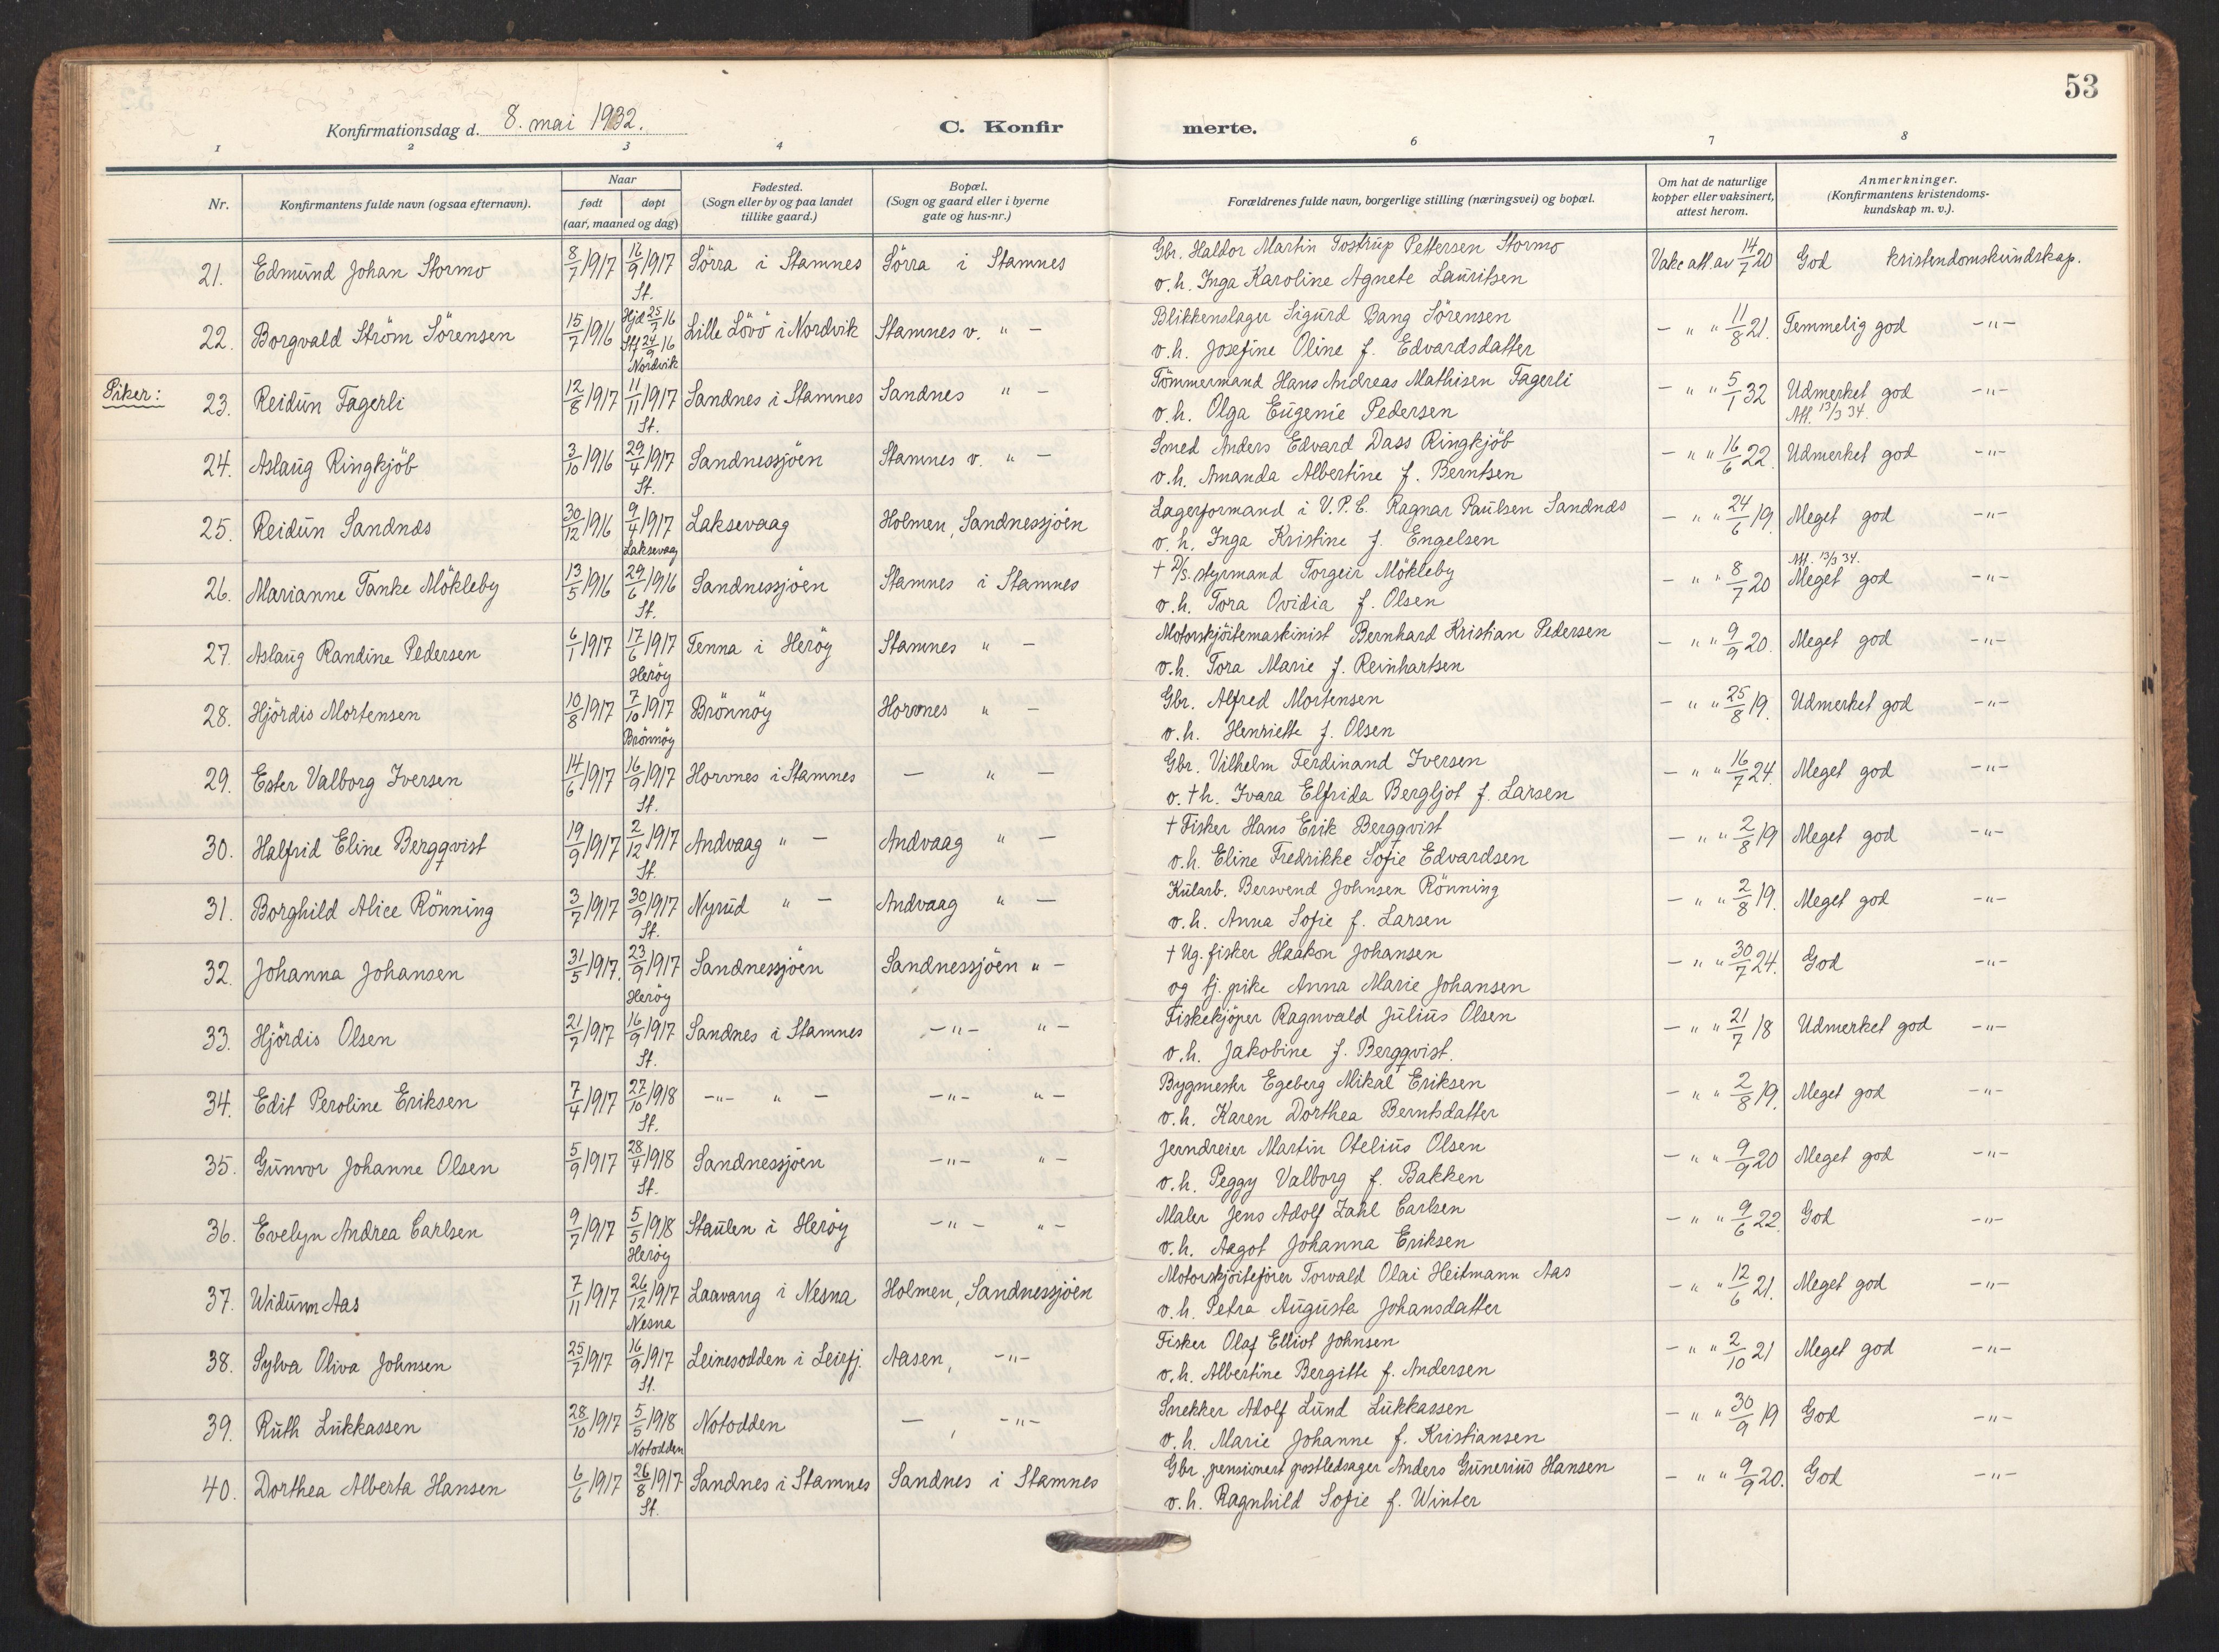 53
Konfirmationsdag d. 8. mai 1932. C. Konfirmerte.
1 2 3 4 6 7 8
Nr. Konfirmantens fulde navn (ogsaa efternavn). Naar født døpt (aar, maaned og dag) Fødested. (Sogn eller by og paa landet tillike gaard.) Bopæl. (Sogn og gaard eller i byerne gate og hus-nr.) Forældrenes fulde navn, borgerlige stilling (næringsvei) og bopæl. Om hat de naturlige kopper eller vaksinert, attest herom. Anmerkninger. (Konfirmantens kristendoms-kundskap m. v.).
21. Edmund Johan Stormo 8/7 1917 16/9 1917 St. Sörra i Stamnes Sörra i Stamnes Gbr. Haldor Martin Tostrup Pettersen Stormo Vakc att. av 14/7 20 God kristendomskundskap.
o. h. Inga Karoline Agnete Lauritsen
22. Borgvald Ström Sörensen 15/7 1916 Hjd 25/7 16 Stf 24/9 16 Nordvik Lille Lövö i Nordvik Stamnes v. " - Blikkenslager Sigurd Bang Sörensen - " " 11/8 21. Temmelig god -"-
o. h. Josefine Oline f. Edvardsdatter
Piker: 23. Reidun Fagerli 12/8 1917 11/11 1917 St. Sandnes i Stamnes Sandnes " - Tömmermand Hans Andreas Mathisen Fagerli - " " 5/1 32 Udmerket god -"-
o. h. Olga Eugenie Pedersen Att. 13/3 34.
24. Aslaug Ringkjöb 3/10 1916 29/4 1917 St. Sandnessjöen Stamnes v. " - Smed Anders Edvard Dass Ringkjöb - " " 16/6 22. Udmerket god -"-
o. h. Amanda Albertine f. Berntsen
25. Reidun Sandnæs 30/12 1916 9/4 1917 Laksevag Laksevaag Holmen, Sandnessjöen Lagerformand i V.P.E. Ragnar Paulsen Sandnæs - " " 24/6 19. Meget god -"-
o. h. Inga Kristine f. Engelsen
26. Marianne Tanke Mökleby 13/5 1916 29/6 1916 St. Sandnessjöen Stamnes i Stamnes + D/S. styrmand Torgeir Mökleby - " " 8/7 20 Att. 13/3 34. Meget god -"-
o. h. Tora Ovidia f. Olsen
27. Aslaug Randine Pedersen 6/1 1917 17/6 1917 Heröy Tenna i Heröy Stamnes " - Motorskjöitemaskinist Bernhard Kristian Pedersen - " " 9/9 20. Meget god -"-
o. h. Tora Marie f. Reinhartsen
28. Hjördis Mortensen 10/8 1917 7/10 1917 Brönnöy Brönnöy Horvnes " - Gbr. Alfred Mortensen - " " 25/8 19. Udmerket god -"-
o. h. Henriette f. Olsen
29. Ester Valborg Iversen 14/6 1917 16/9 1917 St. Horvnes i Stamnes - " - Gbr. Vilhelm Ferdinand Iversen - " " 16/7 24. Meget god -"-
o. + h. Ivara Elfrida Bergljot f. Larsen
30. Halfrid Eline Bergqvist 19/9 1917 2/12 1917 St. Andvaag " - Andvaag " - + Fisker Hans Erik Bergqvist - " " 2/8 19 Meget god -"-
o. h. Eline Fredrikke Sofie Edvardsen
31. Borghild Alice Rönning 3/7 1917 30/9 1917 St. Nyrud " - Andvaag " - Kularb. Bersvend Johnsen Rönning - " " 2/8 19. Meget god -"-
o. h. Anna Sofie f. Larsen
32. Johanna Johansen 31/5 1917. 23/9 1917 Heröy Sandnessjöen Sandnessjöen " - + Ug. fisker Haakon Johansen - " " 30/7 24. God -"-
og tj. pike Anna Marie Johansen
33. Hjördis Olsen 21/7 1917 16/9 1917 St. Sandnes i Stamnes -"- "- Fiskekjöper Ragnvald Julius Olsen - " " 21/7 18 Udmerket god -"-
o. h. Jakobine f. Bergqvist.
34. Edit Peroline Eriksen 7/4 1917 27/10 1918 St. -"- " - -"- "- Bygmester Egeberg Mikal Eriksen - " " 2/8 19. Meget god -"-
o. h. Karen Dorthea Berntsdatter
35. Gunvor Johanne Olsen 5/9 1917 28/4 1918 St. Sandnessjöen -"- "- Jerndreier Martin Otelius Olsen - " " 9/9 20 Meget god -"-
o. h. Peggy Valborg f. Bakken
36. Evelyn Andrea Carlsen 9/7 1917 5/5 1918 Heröy Staulen i Heröy -"- "- Maler Jens Adolf Zahl Carlsen - " " 9/6 22. God -"-
o. h. Aagot Johanna Eriksen
37. Widunn Aas 7/11 1917 26/12 1917 Nesna Laavang i Nesna Holmen, Sandnessjöen Motorskjöitefører Torvald Olai Heitmann Aas - " " 12/6 21. Meget god -"-
o. h. Petra Augusta Johansdatter
38. Sylva Oliva Johnsen 25/7 1917 16/9 1917 St. Leinesodden i Leirfj. Aasen, -"- Fisker Olaf Elliot Johnsen - " " 2/10 21 Meget god -"-
o. h. Albertine Bergitte f. Andersen
39. Ruth Lukkassen 28/10 1917 5/5 1918 Notodden Notodden - , -"- Snekker Adolf Lund Lukkassen - " " 30/9 19 God -"-
o. h. Marie Johanne f. Kristiansen
40. Dorthea Alberta Hansen 6/6 1917 26/8 1917 St. Sandnes i Stamnes Sandnes i Stamnes Gbr. pensionert postledsager Anders Gunerius Hansen - " " 9/9 20. God -"-
o. h. Ragnhild Sofie f. Winter